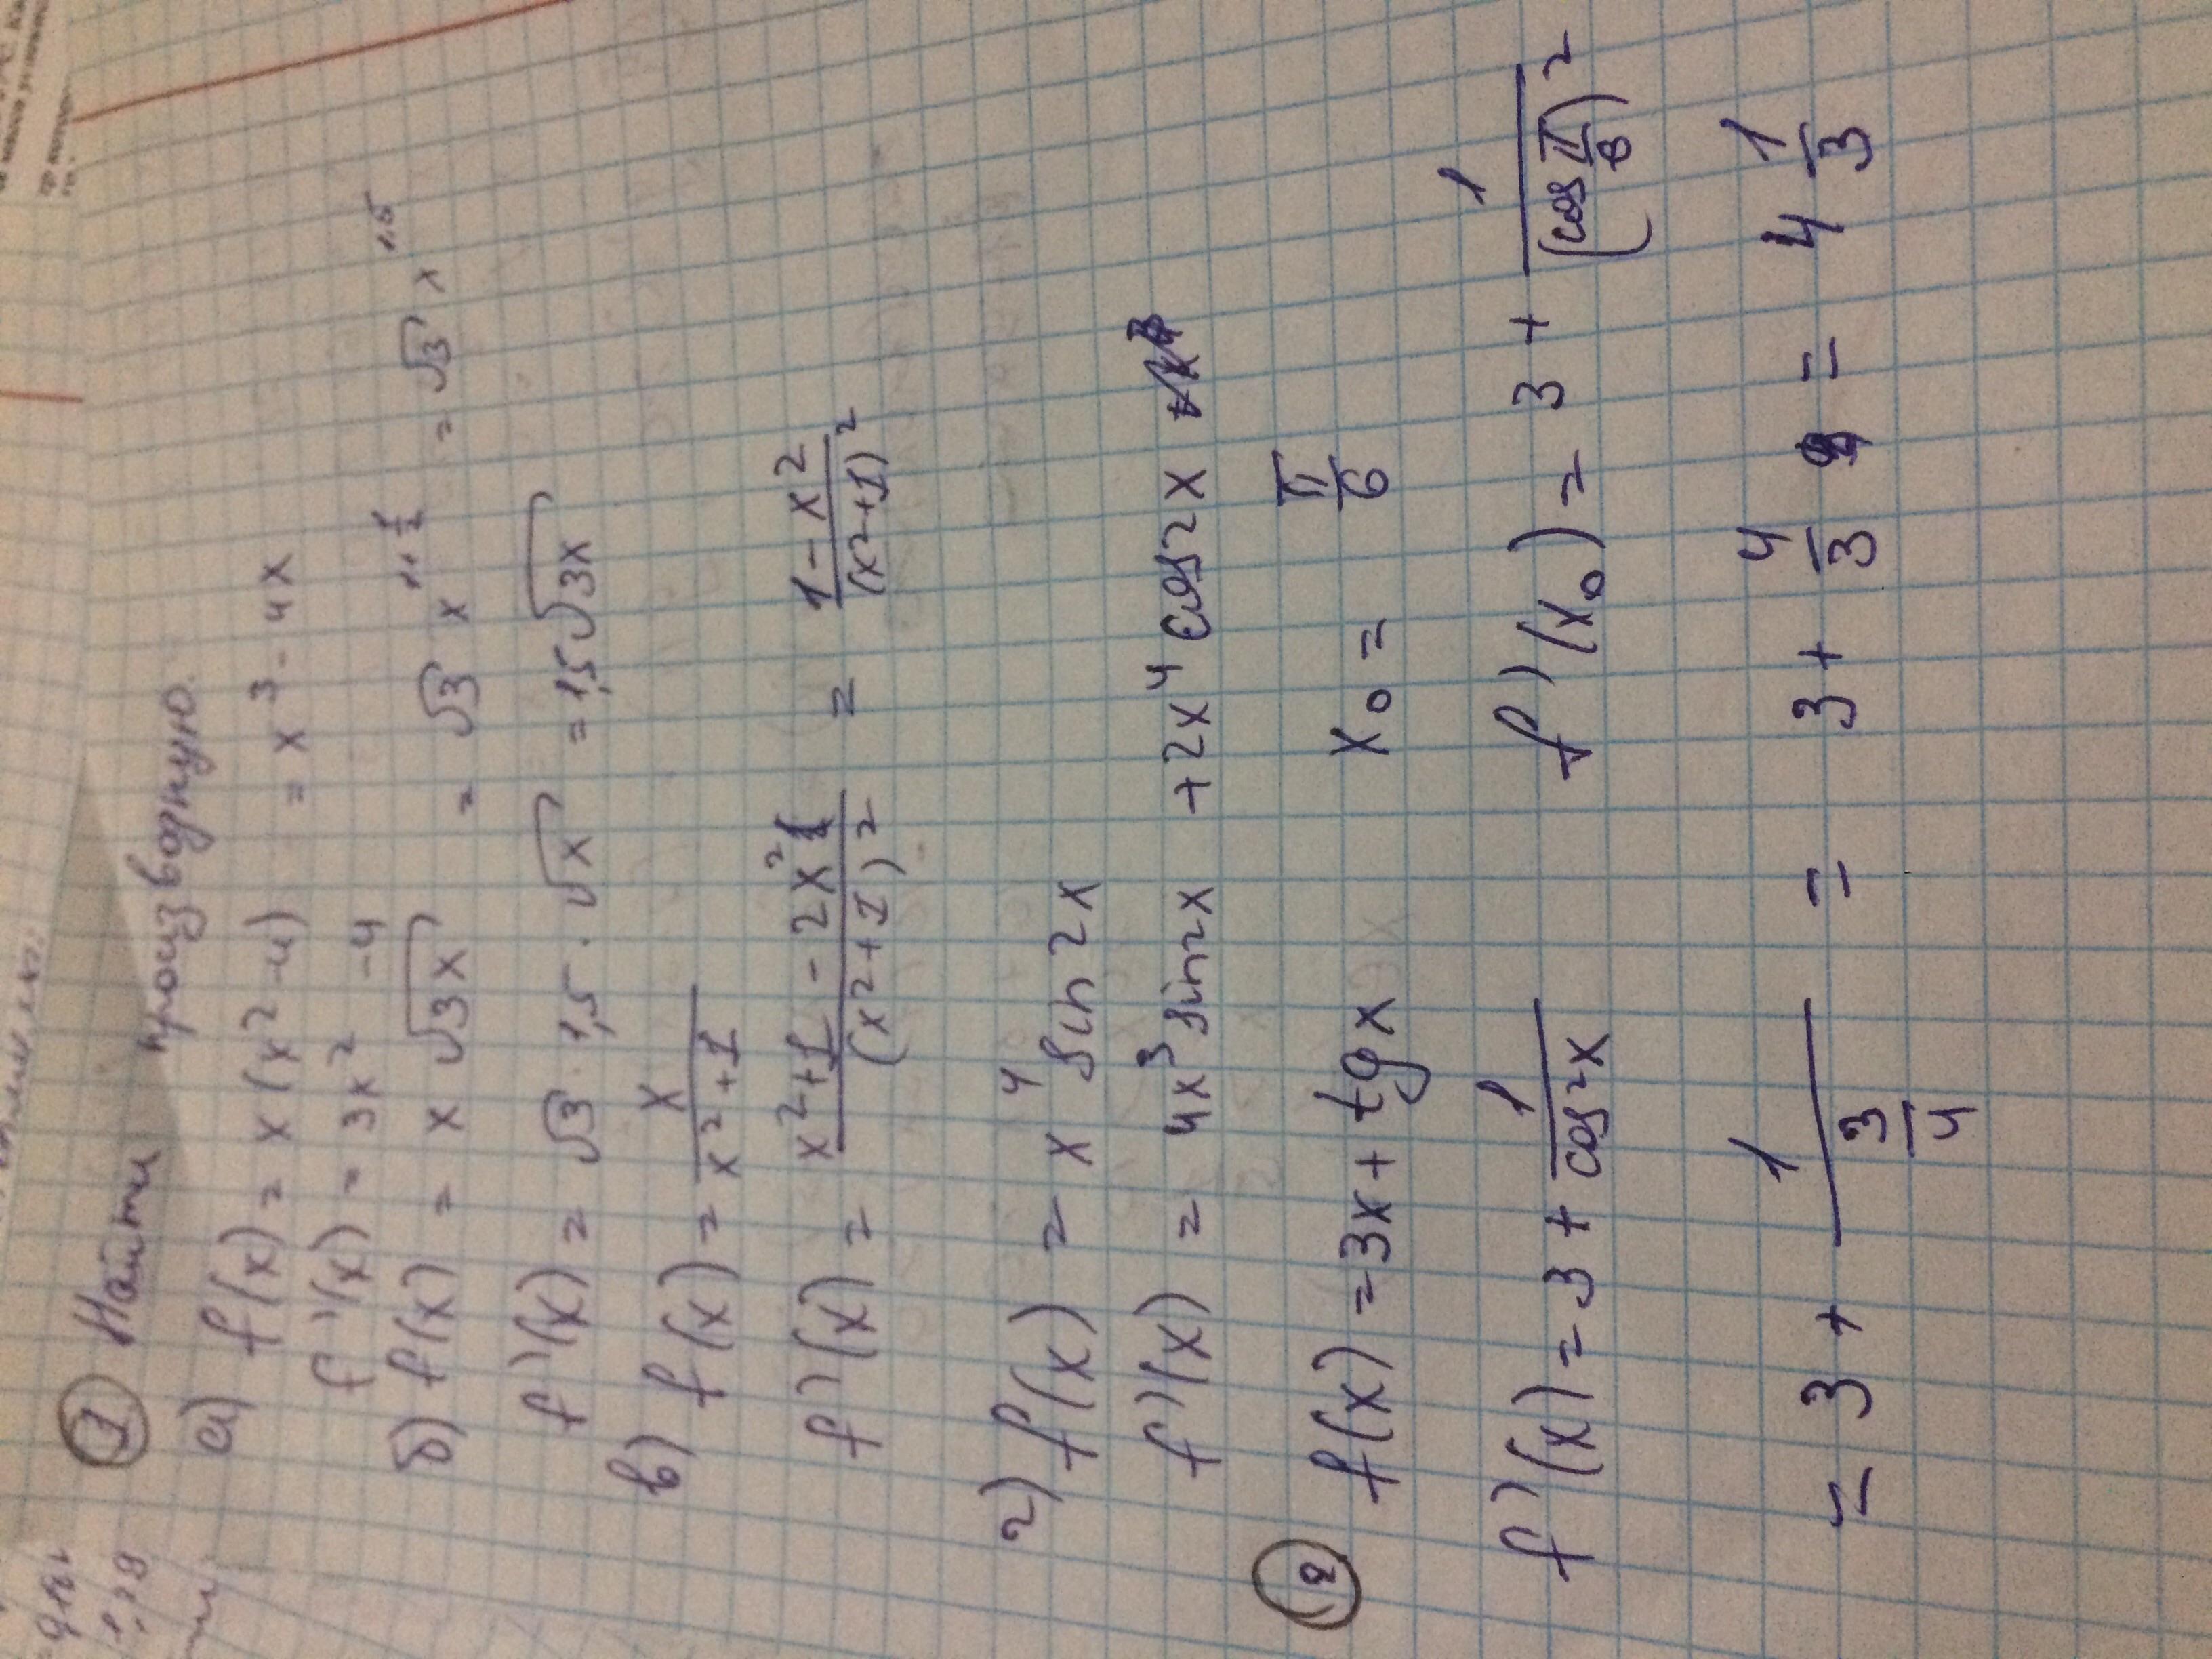 ① Найти производную.
а) f(x) = x(x²-4) = x³-4x
f'(x) = 3x²-4
б) f(x) = x√(3x) = √3 x = √3 x^1,5
f'(x) = √3 · 1,5 · √x = 1,5√(3x)
в) f(x) = x/(x²+1)
f'(x) = (x²+1-2x²)/(x²+1)² = (1-x²)/(x²+1)²
г) f(x) = x⁴ sin 2x
f'(x) = 4x³ sin2x +2x⁴ cos2x
② f(x) = 3x + tg x x₀ = π/6
f'(x) = 3 + 1/cos²x f'(x₀) = 3 + 1/(cos π/6)²
= 3 + 1/(3/4) = 3 + 4/3 = 4 1/3